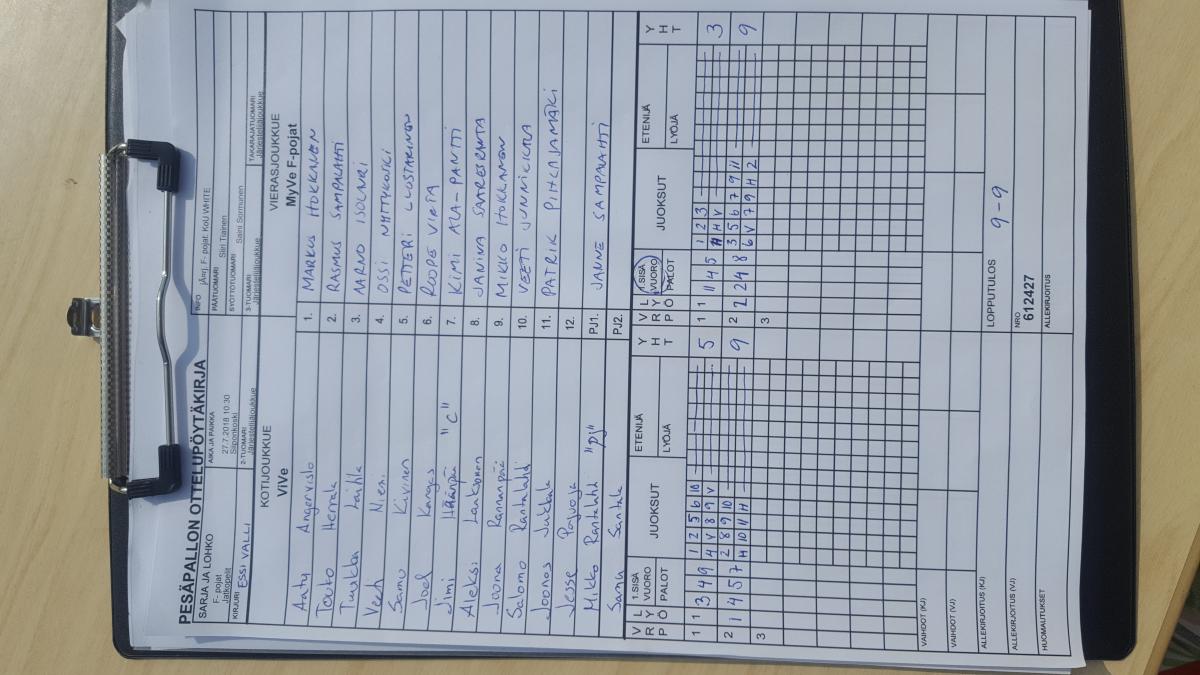 PESÄPALLON OTTELUPÖYTÄKIRJA
SARJA JA LOHKO
F- pojat
Jatkopelit
AIKA JA PAIKKA
27.7.2018 10:30
Siiponkoski
INFO
jÄrej. F- pojat: KoU WHITE
PÄÄTUOMARI
Siiri Tiainen
SYÖTTÖTUOMARI
Saini Sormunen
KIRJURI ESSI VALLI
2-TUOMARI
Järjestelijäjoukkue
3-TUOMARI
Järjestelijäjoukkue
TAKARAJATUOMARI
Järjestelijäjoukkue
KOTIJOUKKUE
ViVe
VIERASJOUKKUE
MyVe F-pojat
Aatu Angervisto 1. MARKUS HOKKANEN
Touto Herrala 2. RASMUS SAMPALAHTI
Tuukka Laihla 3. AARNO ISOLAURI
Veeti Niemi 4. OSSI
Samu Kivinen 5. PETTERI LUOSTARINEN
Joel Kangas 6. ROOPE
Jimi Häänpää "C" 7. KIMI ALA-PANTTI
Aleksi Laaksonen 8. JANINA SAARESRANTA
Joona Rannanpää 9. MIKKO HOKKANEN
Salomo Rantalahti 10. VEETI JUNNIKKALA
Joonas Jukkala 11. PATRIK PIHLAJAMÄKI
Jesse 12.
Mikko Rantalahti "PJ" PJ1. JANNE SAMPALAHTI
Samu Santala PJ2.
V R P L Y Ö 1.SISÄ VUORO PALOT JUOKSUT ETENIJÄ LYÖJÄ Y H T
V R P L Y Ö 1.SISÄ VUORO PALOT JUOKSUT ETENIJÄ LYÖJÄ Y H T
1 1 3 4 9 1 2 5 6 10 5 1 1 11 4 5 1 2 3 3
4 V 8 9 V H H V
2 1 4 5 7 2 8 9 10 9 2 2 2 4 8 3 5 6 7 9 11 9
H 10 11 H 6 V 7 9 H 2
3 3
VAIHDOT (KJ)
VAIHDOT (VJ)
ALLEKIRJOITUS (KJ) LOPPUTULOS 9-9
ALLEKIRJOITUS (VJ) NRO 612427
HUOMAUTUKSET ALLEKIRJOITUS